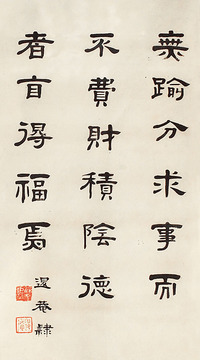 無踰分求事而
不費財積陰德
者 得福焉
退菴隸